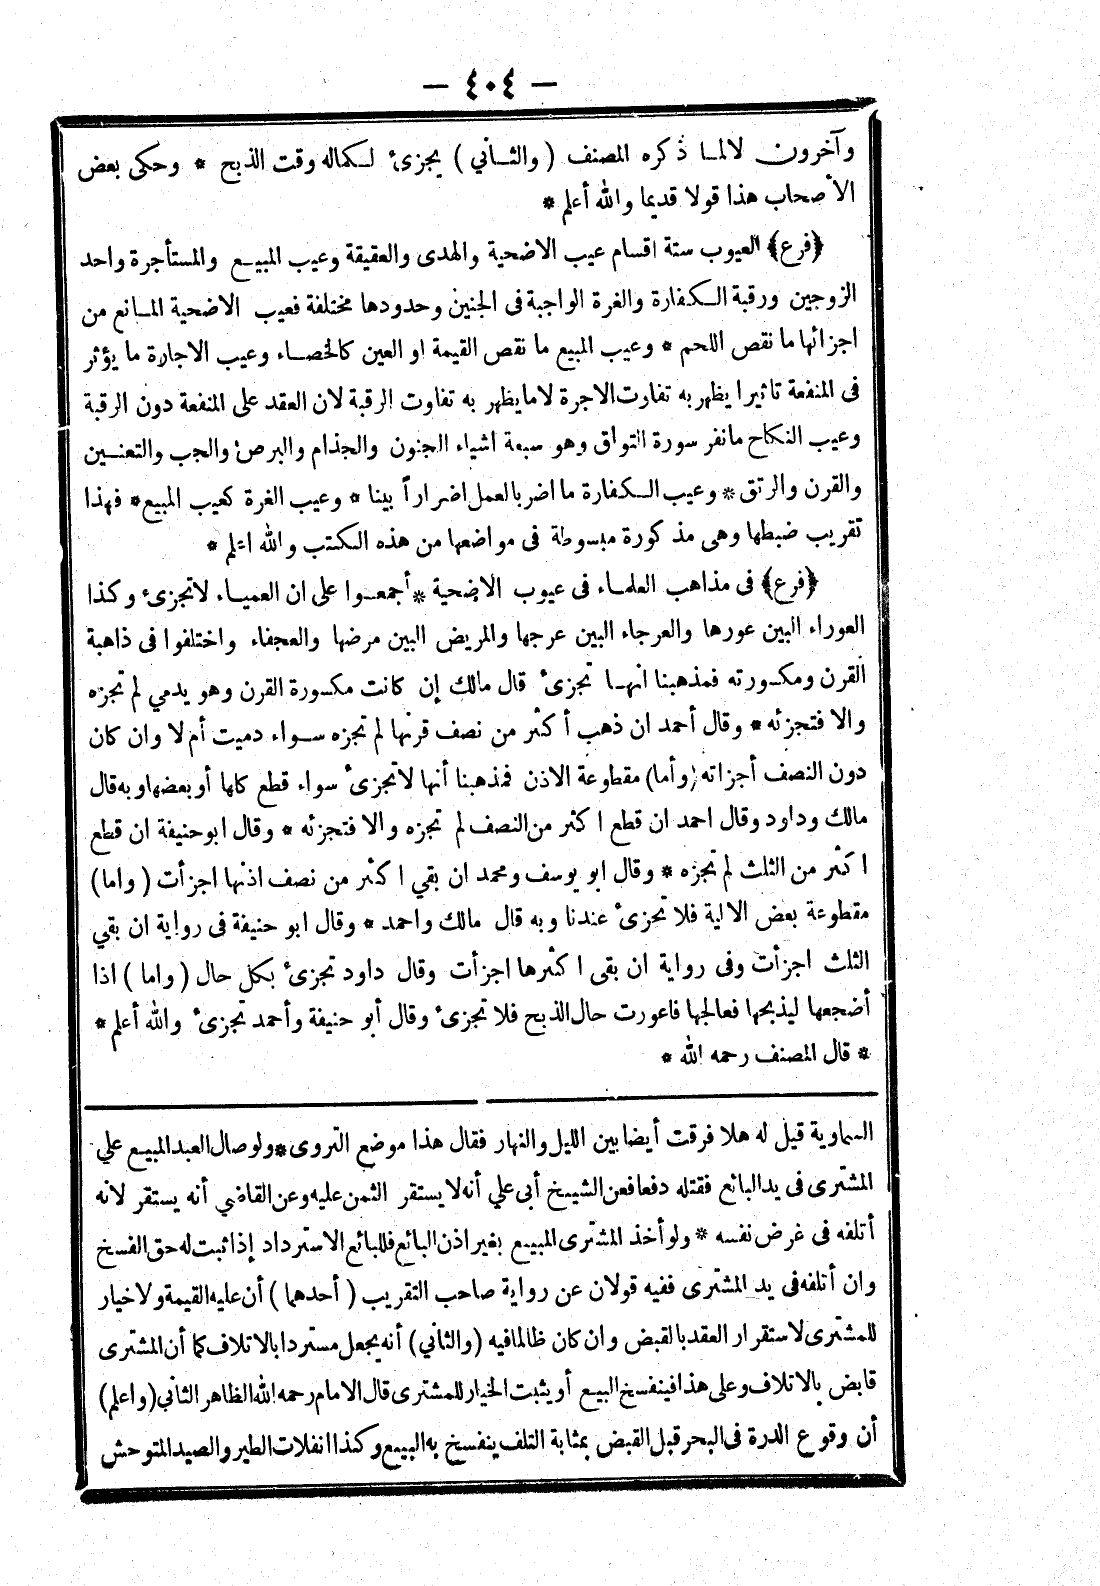 — ٤٠٤ —
وآخرون لالما ذكره المصنف ( والثاني ) يجزئ لكماله وقت الذبح * وحكى بعض
الأصحاب هذا قولا قديما والله أعلم *
﴿فرع﴾ العيوب ستة اقسام عيب الاضحية والهدى والعقيقة وعيب المبيع والمستأجرة واحد
الزوجين ورقبة الكفارة والغرة الواجبة فى الجنين وحدودها مختلفة فعيب الاضحية المانع من
اجزائها ما نقص اللحم * وعيب المبيع ما نقص القيمة او العين كالخصاء وعيب الاجارة ما يؤثر
فى المنفعة تاثيرا يظهر به تفاوت الاجرة لا ما يظهر به تفاوت الرقبة لان العقد على المنفعة دون الرقبة
وعيب النكاح مانفر سورة التواق وهو سبعة اشياء الجنون والجذام والبرص والجب والتعنين
والقرن والرتق * وعيب الكفارة ما اضر بالعمل اضراراً بينا * وعيب الغرة كعيب المبيع * فهذا
تقريب ضبطها وهى مذكورة مبسوطة فى مواضعها من هذه الكتب والله اعلم *
﴿فرع﴾ فى مذاهب العلماء فى عيوب الاضحية * أجمعوا على ان العمياء لا تجزئ وكذا
العوراء البين عورها والعرجاء البين عرجها والمريض البين مرضها والعجفاء واختلفوا فى ذاهبة
القرن ومكسورته فمذهبنا انها تجزئ قال مالك إن كانت مكسورة القرن وهو يدمي لم تجزه
والا فتجزئه * وقال أحمد ان ذهب أكثر من نصف قرنها لم تجزه سواء دميت أم لا وان كان
دون النصف أجزاته (وأما) مقطوعة الاذن فمذهبنا أنها لا تجزئ سواء قطع كلها أو بعضها وبه قال
مالك وداود وقال احمد ان قطع اكثر من النصف لم تجزه والا فتجزئه * وقال ابو حنيفة ان قطع
اكثر من الثلث لم تجزه * وقال ابو يوسف ومحمد ان بقي اكثر من نصف اذنها اجزأت ( واما )
مقطوعة بعض الالية فلا تجزئ عندنا وبه قال مالك واحمد * وقال ابو حنيفة فى رواية ان بقي
الثلث اجزأت وفى رواية ان بقى اكثرها اجزأت وقال داود تجزئ بكل حال ( واما ) اذا
أضجعها ليذبحها فعالجها فاعورت حال الذبح فلا تجزئ وقال أبو حنيفة وأحمد تجزئ والله أعلم *
* قال المصنف رحمه الله *
السماوية قيل له هلا فرقت أيضا بين الليل والنهار فقال هذا موضع التروى * ولو صال العبد المبيع علي
المشترى فى يد البائع فقتله دفعا فعن الشيخ أبى علي أنه لا يستقر الثمن عليه وعن القاضي أنه يستقر لانه
أتلفه فى غرض نفسه * ولو أخذ المشترى المبيع بغير اذن البائع فللبائع الاسترداد إذا ثبت له حق الفسخ
وان أتلفه فى يد المشترى ففيه قولان عن رواية صاحب التقريب ( أحدهما ) أن عليه القيمة ولا خيار
للمشترى لاستقرار العقد بالقبض وان كان ظالما فيه (والثاني) أنه يجعل مستردا بالاتلاف كما أن المشترى
قابض بالاتلاف وعلى هذا فينفسخ البيع أو يثبت الخيار للمشترى قال الامام رحمه الله الظاهر الثاني (واعلم)
أن وقوع الدرة فى البحر قبل القبض بمثابة التلف ينفسخ به البيع وكذا انفلات الطير والصيد المتوحش